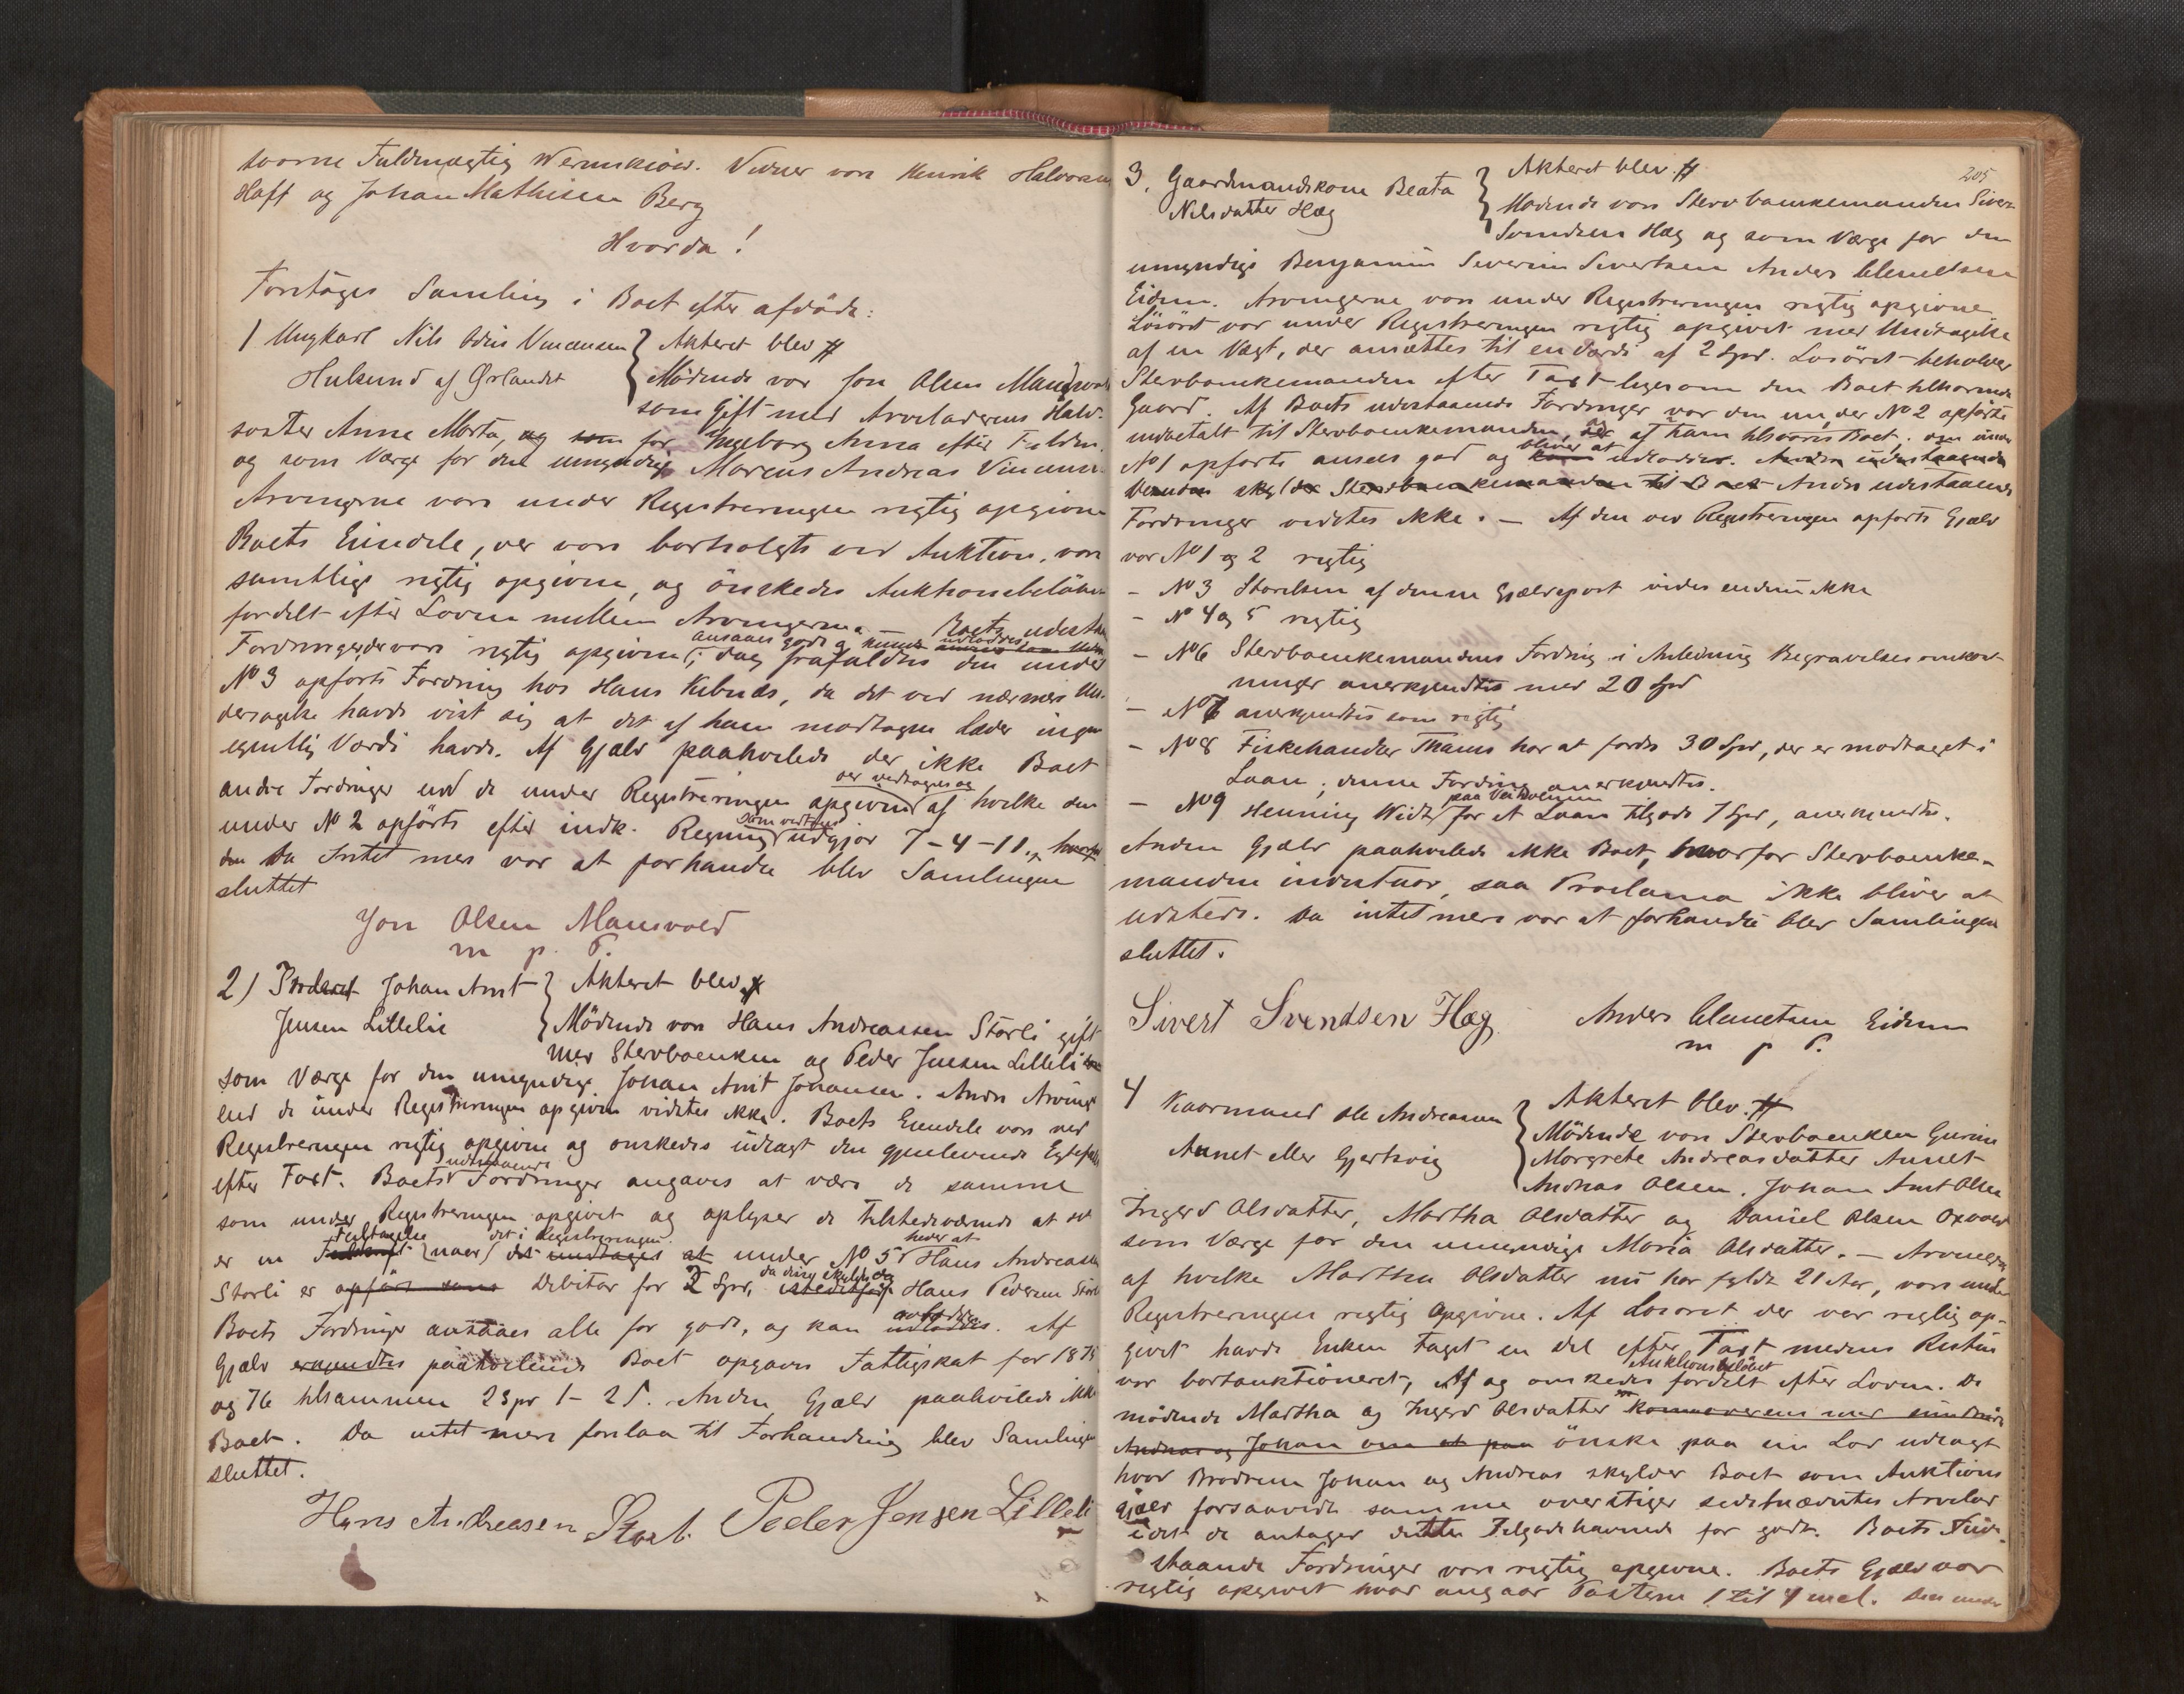 svorne Fuldmægtig Wernskiold. Vidner vare Henrik Halvorsen
Haft og Johan Mathisen Berg
Hvorda!
Foretoges Samling i Boet efter afdöde:
1 Ungkarl Nils Odin Vincensen } Akteret blev #
Hulsund af Ørlandet
Mödende var Jon Olsen Mansvold
som Gift med Arveladerens Halv-
söster Anne Marta, for Ingeborg Anna efter
og som Værge for den umyndige Marcus Andreas Vincensen
Arvingerne vare under Registreringen rigtig opgivne
Boets Eiendele, der vare bortsolgte ved Auktion, vare
samtlige rigtig opgivne, og önskedes Auktionsbelöbet
fordelt efter Loven mellem Arvingerne. – Boets udestaa
ansaaes gode og kunde udloddes
Fordringer, der vare rigtig opgivne; dog frafaldtes den under
No 3 opförte Fordring hos Hans, da det ved nærmere Un-
dersögelse havde vist sig at det af ham modtagne Læder ingen
egentlig Værdi havde. Af Gjæld paahvilede der ikke Boet
der vedtoges og
andre Fordringer end de under Registreringen opgivne af hvilke den
Som vedtoges
under No 2 opförte efter indk. Regning udgjør 7-4-11.
Da Intet mer var at forhandle blev Samlingen
sluttet
Jon Olsen Mansvold
m p. P.
2) Johan Arnt } Akteret blev #
Jensen Lillelie
Mödende var Hans Andreassen Storli gift
med Stervboenken og Peder Jensen Lilleli
som Værge for den umyndige Johan Arnt Johansen. Andre Arvinge
end de under Registreringen opgivne vidstes ikke. Boets Eiendele vare ved
Registreringen rigtig opgivne og önskedes udlagt den gjenlevende Egtefælle
udestaaende
efter Taxt. Boets Fordringer angaves at være de samme
som under Registreringen opgivet og oplyser de tilstedeværende at det
Feiltagelse det i Registreringen heder at
er en (naar) under No 5 Hans Andreassen
Storli er opfört som Debitor for 2 Spd, Hans Pedersen Storli
Boets Fordringer ansaaes alle for gode, og kan udloddes. Af
Gjæld paahvilende Boet opgaves Fattigskat for 1875
og 76 tilsammen 2 Spd 1-25. Anden Gjæld paahvilede ikke
Boet. Da intet mere forelaa til Forhandling blev Samlingen
sluttet.
Hans Andreasen Storli Peder Jensen Lilleli
205
3. Gaardmandskone Beata } Akteret blev #
Nilsdatter Hæg
Mödende vare Stervboenkemanden Siver
Svendsen Hæg og som Værge for den
umyndige Benjamin Severin Sivertsen Anders Clemetsen
Eidem. Arvingerne vare under Registreringen rigtig opgivne.
Lösöret var under Registreringen rigtig opgivet med Undtagelse
af en Vægt, der ansættes til en Værdi af 2 Spd. Lösöret beholder
Stervboenkemanden efter Taxt ligesom den Boet tilhörende
Gaard. Af Boets udestaaende Fordringer var den ene, der No 2 opförte
indbetalt til Stervboenkemanden, og af ham Boet. den under
bliver at
No 1 opförte ansees god og udloddes. Anden udestaaende
skylder Stervboenkemanden til Boet Andre udestaaende
Fordringer vidstes ikke. – Af den ved Registreringen opförte Gjæld
var No 1 og 2 rigtig
– No 3 Störelsen af denne Gjældspost vides endnu ikke
– No 4 og 5 rigtig
– No 6 Stervboenkemandens Fordring i Anledning Begravelsesomkost-
ninger anerkjendtes med 20 Spd
– No 7 anerkjendtes som rigtig
– No 8 Fiskehandler Thams har at fordre 30 Spd, der er modtaget i
Laan; denne Fordring anerkjendtes.
– No 9 Henning Widt for et Laan tilgode 7 Spd, anerkjendtes.
Anden Gjæld paahvilede ikke Boet, hvorfor Stervboenke-
manden indestaar, saa Proclama ikke bliver at
udstede. Da intet mere var at forhandle blev Samlingen
sluttet.
Sivert Svendsen Hæg Anders Clemetsen Eidem
m p P.
4 Kaarmand Ole Andreassen } Akteret blev #
Aunet eller Gjertsvig
Mödende vare Stervboenken Gurine
Margrete Andreasdatter Aunet
Andreas Olsen, Johan Arnt Olsen
Ingerd Olsdatter, Martha Olsdatter og Daniel Olsen Oxvold
som Værge for den umyndige Maria Olsdatter. – Arvingerne
af hvilke Martha Olsdatter nu har fyldt 21 Aar, vare under
Registreringen rigtig opgivne. Af Lösöret der var rigtig op-
givet havde Enken taget en Del efter Taxt medens Resten
Auktionsbelöbet
var bortauktioneret, og önskedes fordelt efter Loven. De
mödende Martha og Ingerd Olsdatter
Andreas og Johan om at paa önske paa sin Lod udlagt
hvad Brödrene Johan og Andreas skylder Boet som Auktions
gjæld forsaavidt samme overstiger sidstnævntes Arvelod
idet de antager dette Tilgodehavende for godt. Boets Ude-
staaende Fordringer vare rigtig opgivne. Boets Gjæld var
rigtig opgivet hvad angaar Posterne 1 til 4 incl. Den under